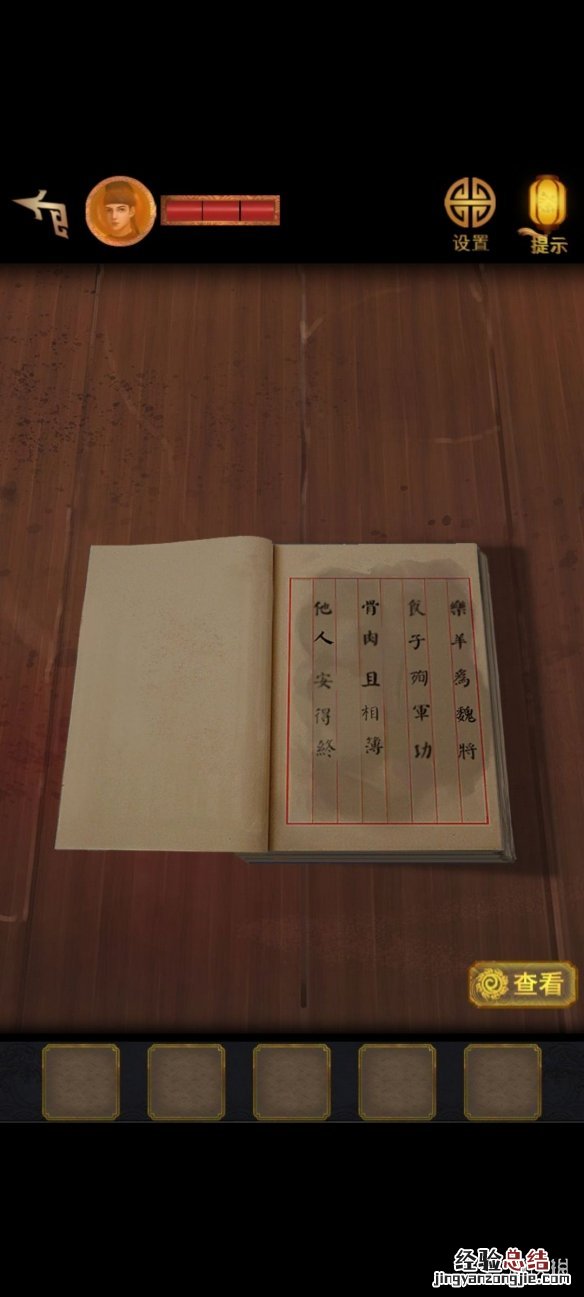 设置
提示
樂羊為魏將
食子殉軍功
骨肉且相簿
他人安得終
查看
经验总结
jingyanzongjie.com